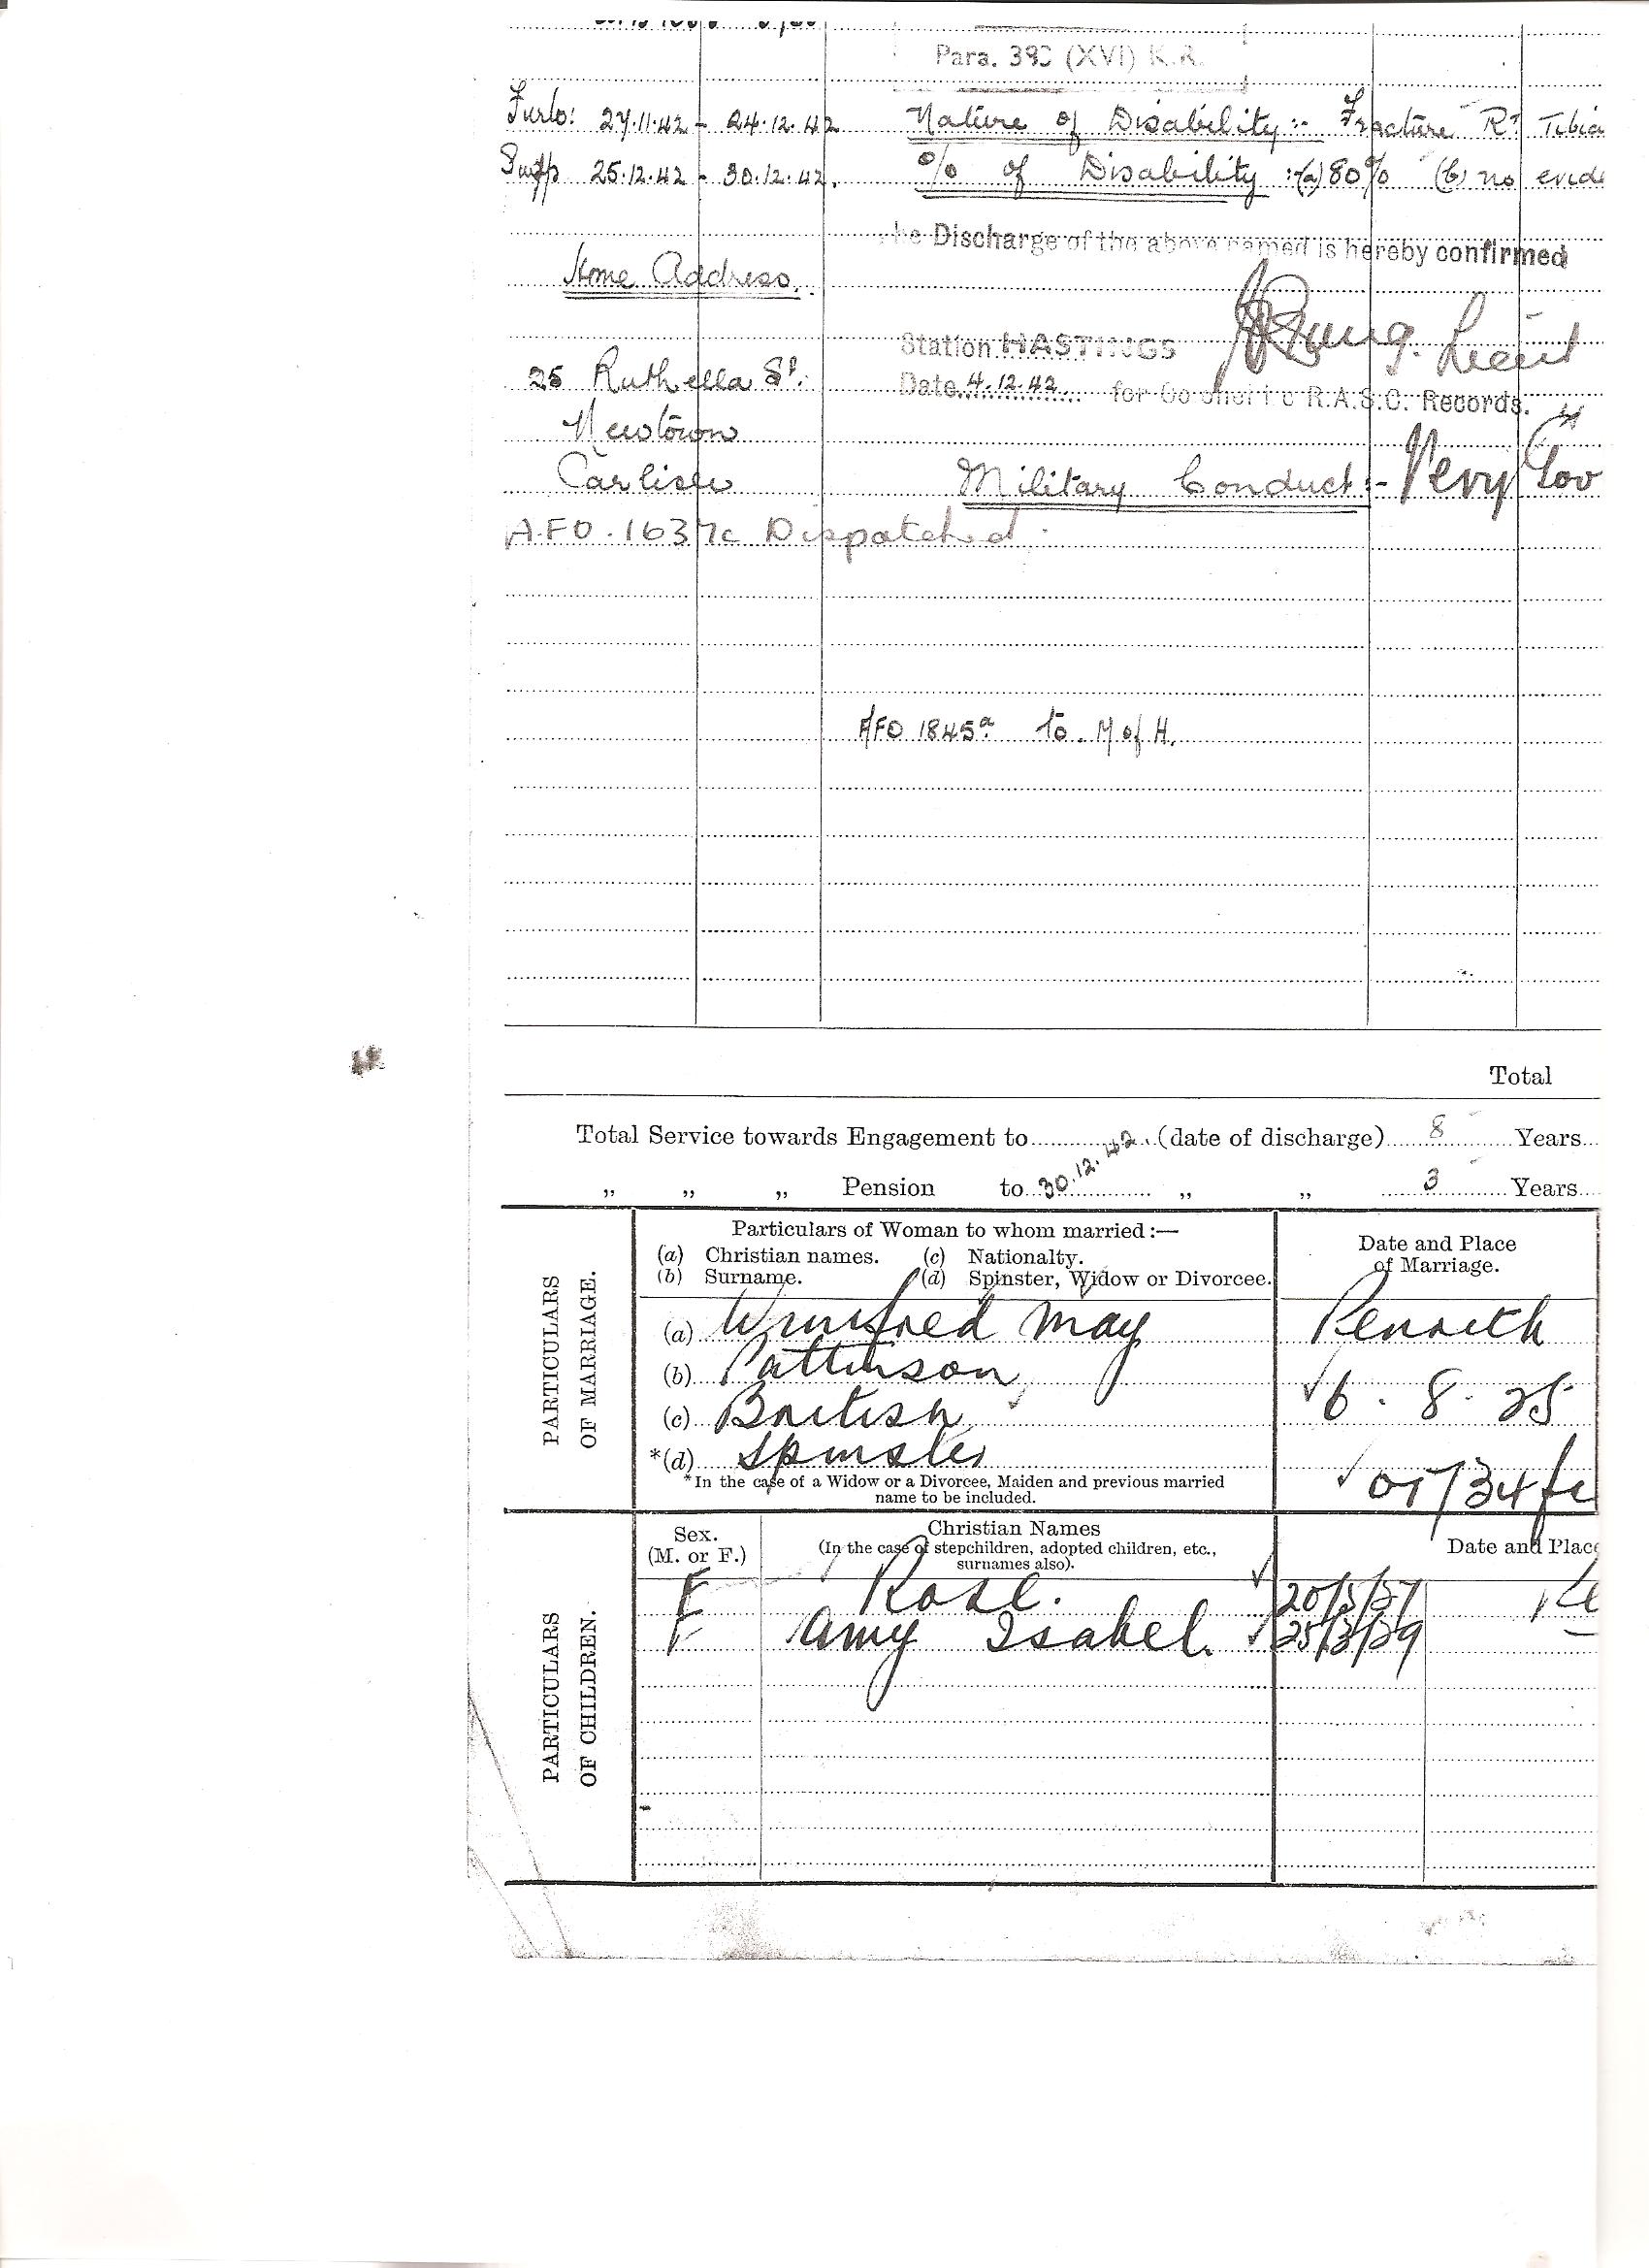 Para. 390 (XVI) K.R.
Furlo: 27.11.42 - 24.12.42 Nature of Disability:- Fracture Rt Tibia
25.12.42 - 30.12.42. % of Disability :-(a) 80% (b) no evide
The Discharge of the above named is hereby confirmed
Home Address.
Lieut
Station HASTINGS
25 St. Date 4.12.42 for R.A.S.C. Records.
Newtown
Carlisle Military Conduct:- Very Goo
A.F.O. 1637c Dispatched.
AFO 1845a to. M of H.
Total
Total Service towards Engagement to (date of discharge) 8 Years
„ „ „ Pension to 30.12.42. „ „ 3 Years
PARTICULARS OF MARRIAGE.
Particulars of Woman to whom married:—
(a) Christian names. (c) Nationalty.
(b) Surname. (d) Spinster, Widow or Divorcee.
Date and Place
of Marriage.
(a) Winifred May Penrith
(b) Pattinson
(c) British 6. 8. 25
*(d) Spinster
*In the case of a Widow or a Divorcee, Maiden and previous married
name to be included.
PARTICULARS OF CHILDREN.
Sex.
(M. or F.)
Christian Names
(In the case of stepchildren, adopted children, etc.,
surnames also).
Date and Place
F Rose. 20/5/27
F Amy Isabel. 25/3/29